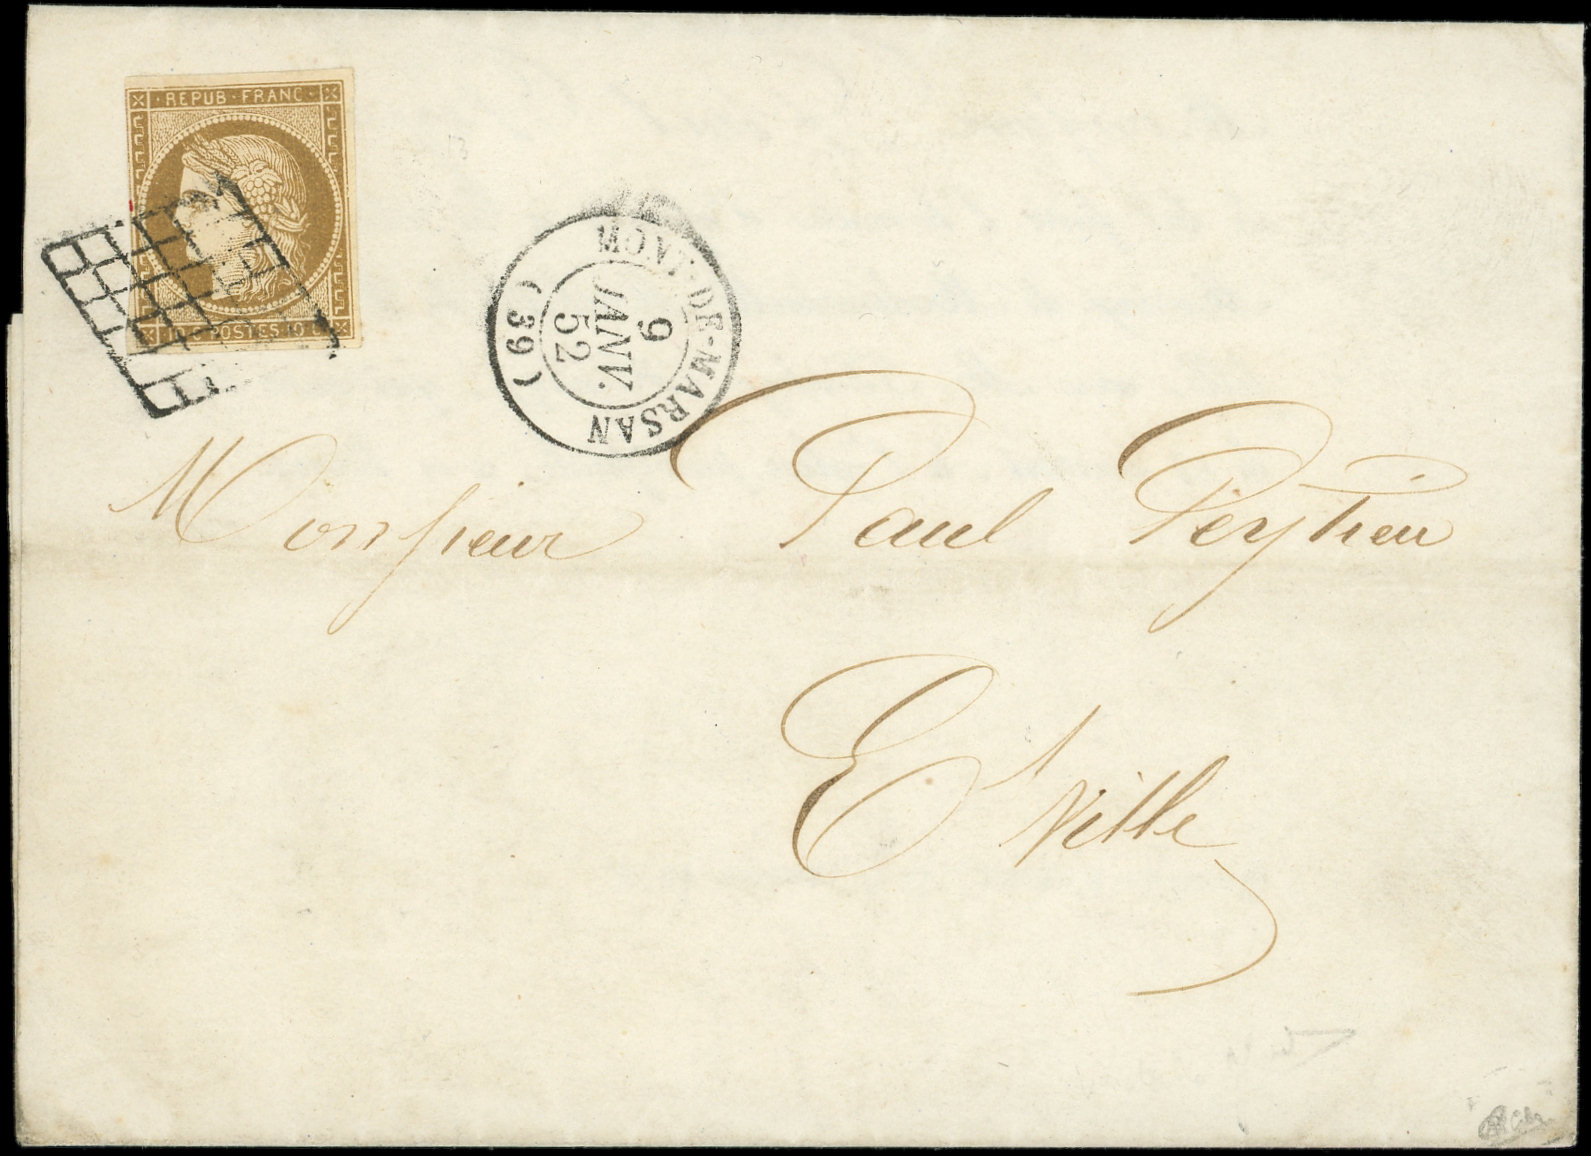 REPUB·FRANC·
10 C POSTES 10 C
MONT-DE-MARSAN
9
JANV.
52
(39)
Monsieur Paul Peytrieu
E/Ville